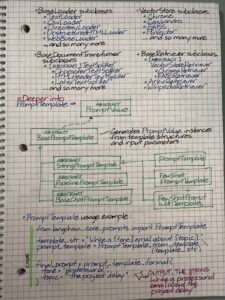 • BaseLoader subclasses
• TextLoader
• CSVLoader
• DirectoryLoader
• UnstructuredHTMLLoader
• WebBaseLoader
... and so many more
• VectorStore subclasses
• Chroma
• Cassandra
• FAISS
• Pinecone
... and so many more
• BaseDocumentTransformer subclasses
• TextSplitter
• CharacterTextSplitter
• HTMLHeaderTextSplitter
... and so many more
• BaseRetriever subclasses
• VectorStoreRetriever
• ArxivRetriever
• WikipediaRetriever
... and so many more
Deeper into
PromptTemplate
ABSTRACT
PromptValue
ABSTRACT
BasePromptTemplate
Generates PromptValue instances
from template structures
and input parameters
ABSTRACT
StringPromptTemplate
PromptTemplate
ABSTRACT
PipelinePromptTemplate
FewShot
PromptTemplate
ABSTRACT
BaseChatPromptTemplate
FewShotPrompt
• PromptTemplate usage example:
from langchain_core.prompts import PromptTemplate
template_str = "Write a {tone} email about {topic}"
prompt_template = PromptTemplate.from_template(
template_str)
final_prompt = prompt_template.format(
tone = "professional",
topic = "the project delay")
OUTPUT THE STRING
"Write a professional
email about the
project delay"